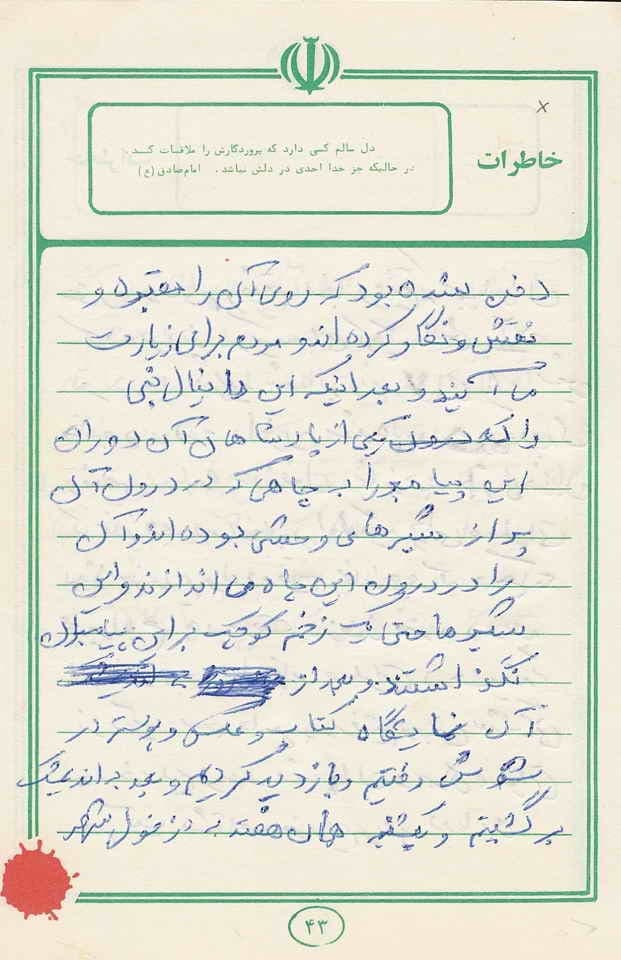 خاطرات
دل سالم کسی دارد که پروردگارش را ملاقات کند
در حالیکه جز خدا احدی در دلش نباشد. امام صادق (ع)
دفن شده بود که روی آن را مقبره و
نقش و نگار کرده اند و مردم برای زیارت
می آیند و بعد اینکه این دانیال نبی
را که یکی از پادشاهان آن دوران
این پیامبر را به چاهی که در درون آن
پر از شیرهای وحشی بوده اند و آن
را در درون این چاه می اندازند و این
شیرها حتی یک زخم کوچک برای پیامبران
نگذاشتند و بعد از
آن نمایشگاه کتاب و عکس و پوستر در
شوش رفتیم و بازدید کردیم و بعد به اندیمشک
برگشتیم و یکشنبه همان هفته به دزفول شهر
۴۳